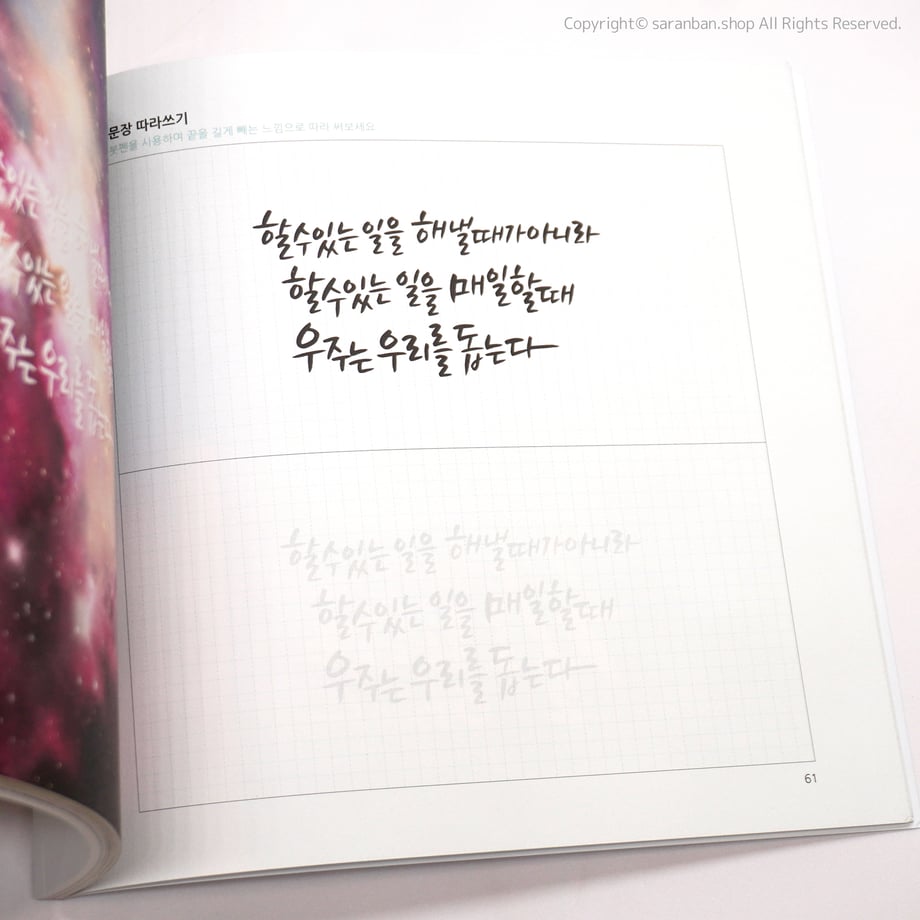 Copyright© saranban.shop All Rights Reserved.
문장 따라쓰기
붓펜을 사용하여 끝을 길게 빼는 느낌으로 따라 써보세요
할 수 있는 일을 해낼 때가 아니라
할 수 있는 일을 매일 할 때
우주는 우리를 돕는다
할 수 있는 일을 해낼 때가 아니라
할 수 있는 일을 매일 할 때
우주는 우리를 돕는다
61